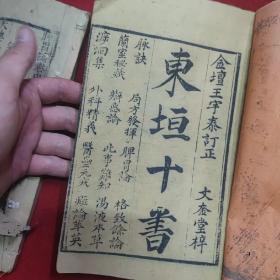 金壇王宇泰訂正 文奎堂梓
東垣十書
脉訣 局方發揮 脾胃論 格致餘論
蘭室秘藏 辨惑論 此事難知 湯液本草
溯洄集 外科精義 醫壘元戎 癍論萃英